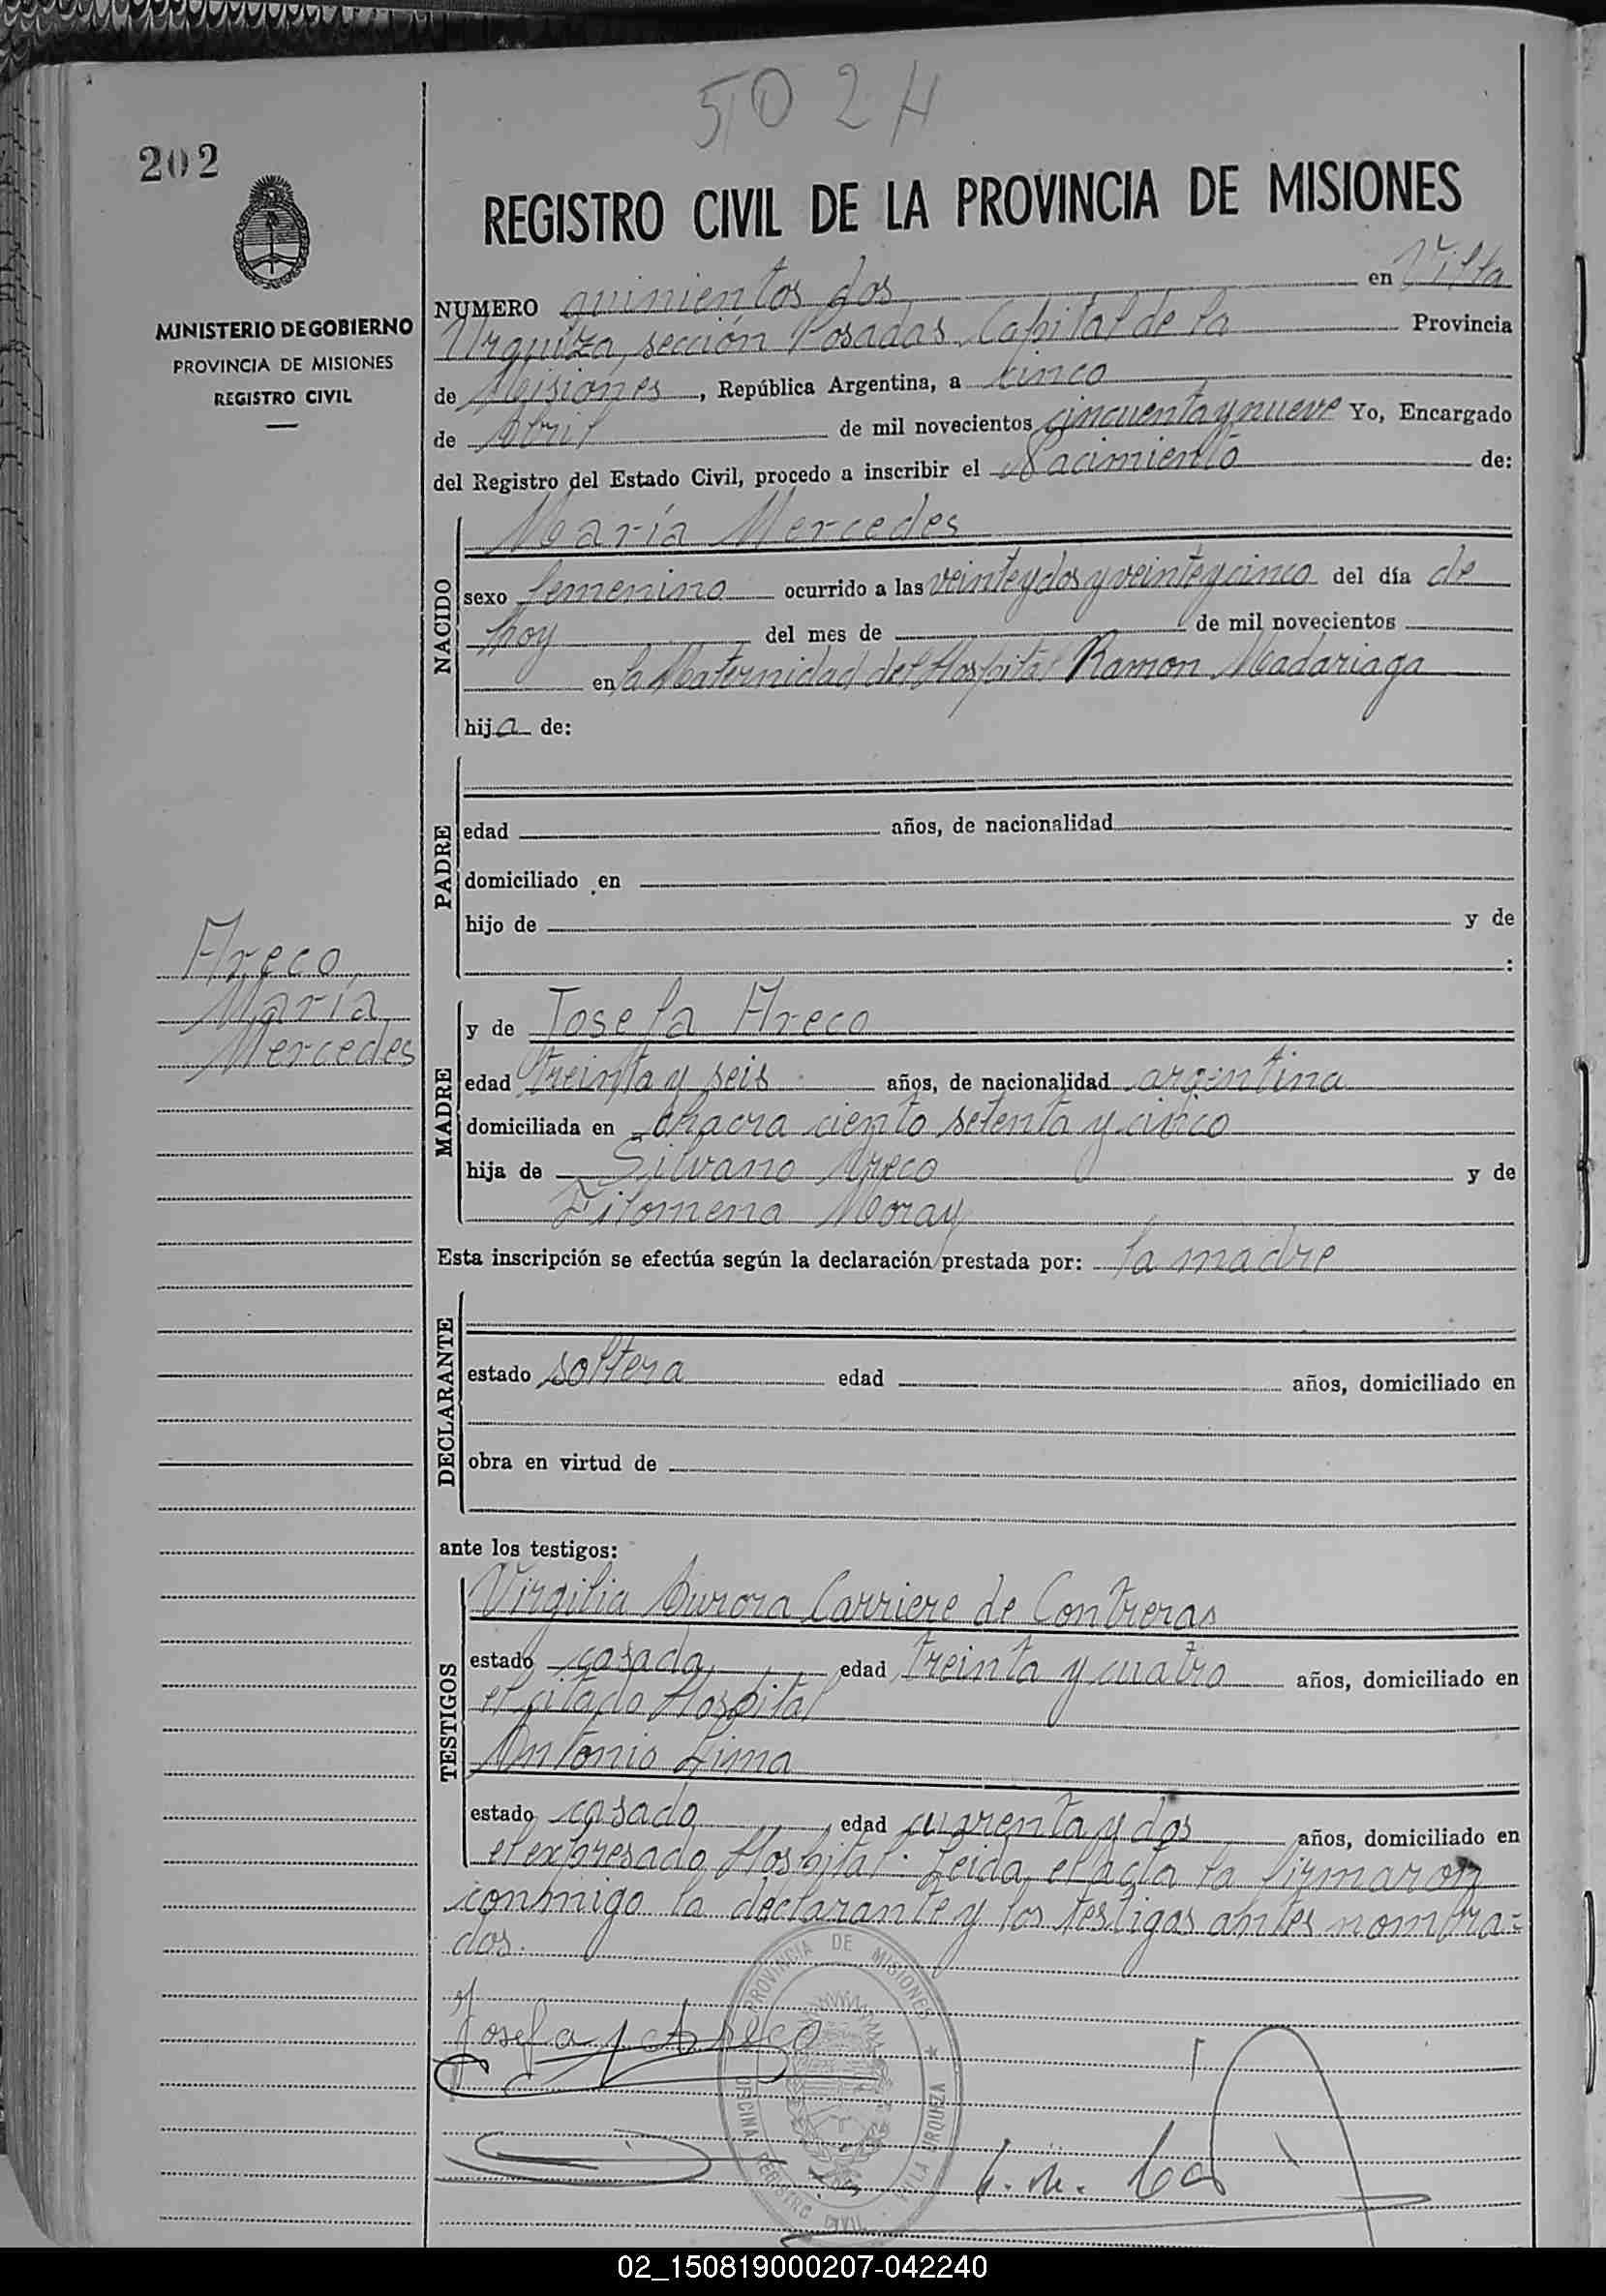 502 H
202
REGISTRO CIVIL DE LA PROVINCIA DE MISIONES
MINISTERIO DE GOBIERNO
PROVINCIA DE MISIONES
REGISTRO CIVIL
NUMERO quinientos dos en Villa
Urquiza, sección Posadas Capital de la Provincia
de Misiones, República Argentina, a cinco
de Abril de mil novecientos cincuenta y nueve Yo, Encargado
del Registro del Estado Civil, procedo a inscribir el Nacimiento de:
NACIDO
María Mercedes
sexo femenino ocurrido a las veinte y dos y veinte y cinco del día de
hoy del mes de de mil novecientos
en la Maternidad del Hospital Ramon Madariaga
hija de:
PADRE
edad años, de nacionalidad
domiciliado en
hijo de y de
:
Areco,
María
Mercedes
MADRE
y de Josefa Areco
edad treinta y seis años, de nacionalidad argentina
domiciliada en chacra ciento setenta y cinco
hija de Silvano Areco y de
Filomena Moray
Esta inscripción se efectúa según la declaración prestada por: la madre
DECLARANTE
estado soltera edad años, domiciliado en
obra en virtud de
ante los testigos:
TESTIGOS
Virgilia Aurora Carriere de Contreras
estado casada edad treinta y cuatro años, domiciliado en
el citado Hospital
Antonio Lima
estado casado edad cuarenta y dos años, domiciliado en
el expresado Hospital. Leida el acta la firmaron
conmigo la declarante y los testigos antes nombra=
dos.
Josefa Areco
PROVINCIA DE MISIONES
OFICINA REGISTRO CIVIL VILLA URQUIZA
02_150819000207-042240